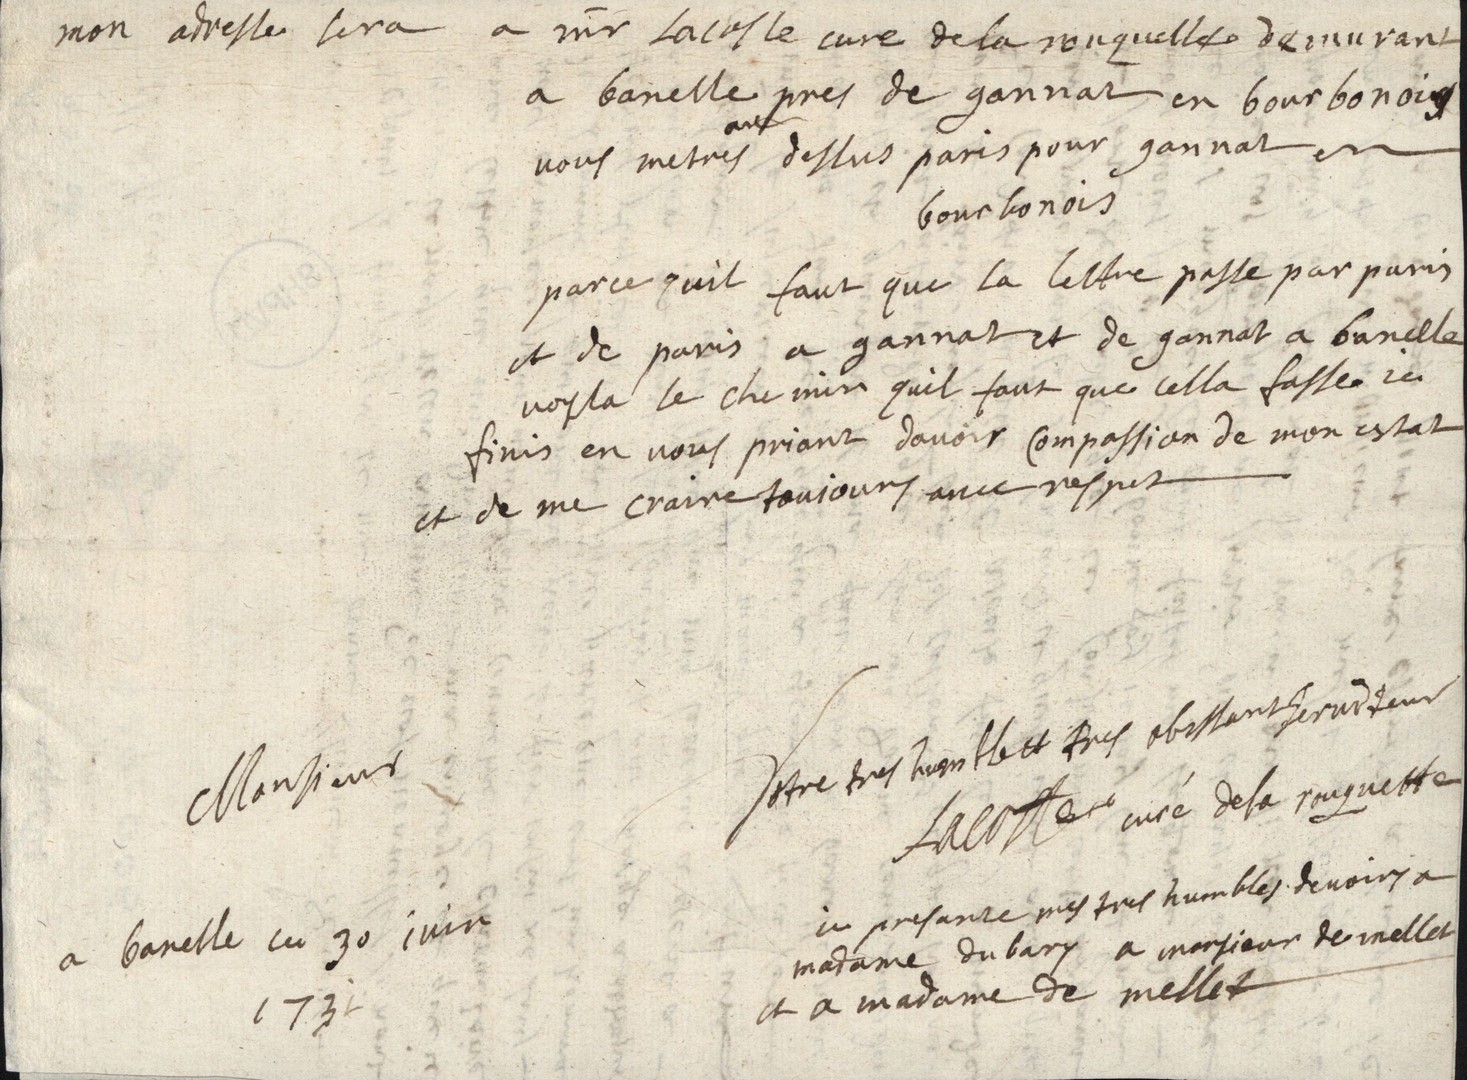 mon adresse sera a mr Lacoste cure dela rouquette demurant
a banelle pres de gannat en bourbonois
vous metres au dessus paris pour gannat en
bourbonois
parce quil faut que la lettre passe par paris
et de paris a gannat et de gannat a banelle
voyla le chemin quil faut que cella fasse ie
finis en vous priant davoir compassion de mon estat
et de me craire toujours avec respet
Monsieur
Votre tres humble et tres obissant serviteur
Lacoste curé dela rouquette
a banelle ce 30 iuin
ie presante mes tres humbles devoirs a
madame dubary a monsieur de mellet
et a madame de mellet